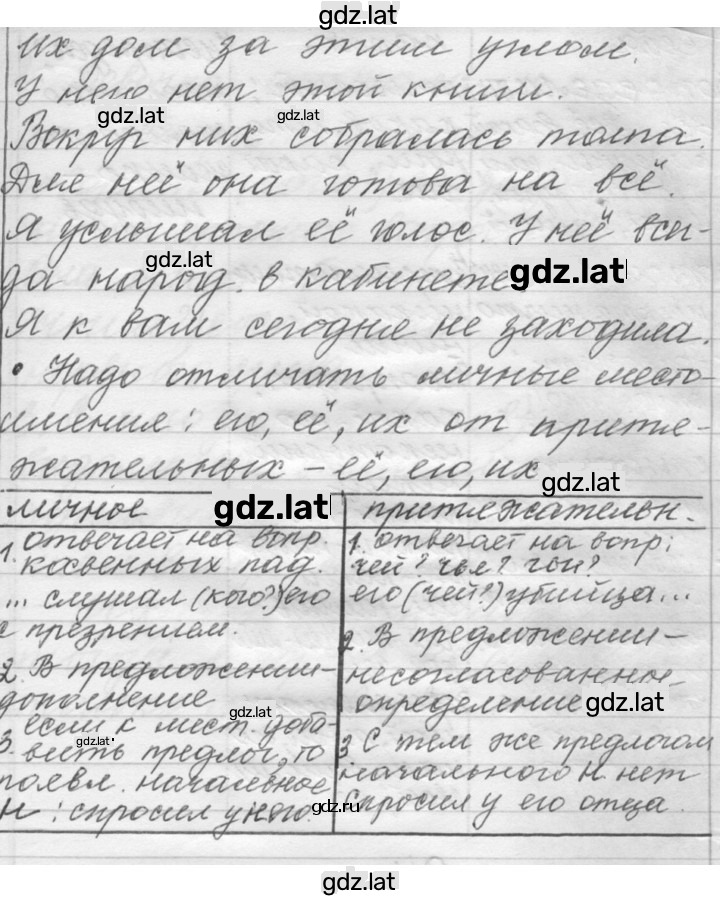 gdz.lat
их дом за этим углом.
У него нет этой книги.
gdz.lat gdz.lat
Вокруг них собралась толпа.
Для неё она готова на всё.
Я услышал её голос. У неё всег-
gdz.lat
да народ. в кабинете gdz.lat
Я к вам сегодня не заходила.
• Надо отличать личные место-
имения: его, её, их от притя-
жательных - её, его, их
gdz.lat
личное gdz.lat притяжательн.
1. отвечает на вопр.
косвенных пад.
... слушал (кого?) его
с презрением.
2. В предложении-
дополнение
gdz.lat
3. если к мест. доба-
вить предлог, то
gdz.lat
появл. начальное
н: спросил у него.
gdz.ru
1. отвечает на вопр:
чей? чья? чьи?
его (чей?) убийца...
2. В предложении-
несогласованное
определение gdz.lat
3 С тем же предлогом
начального н нет
спросил у его отца.
gdz.lat